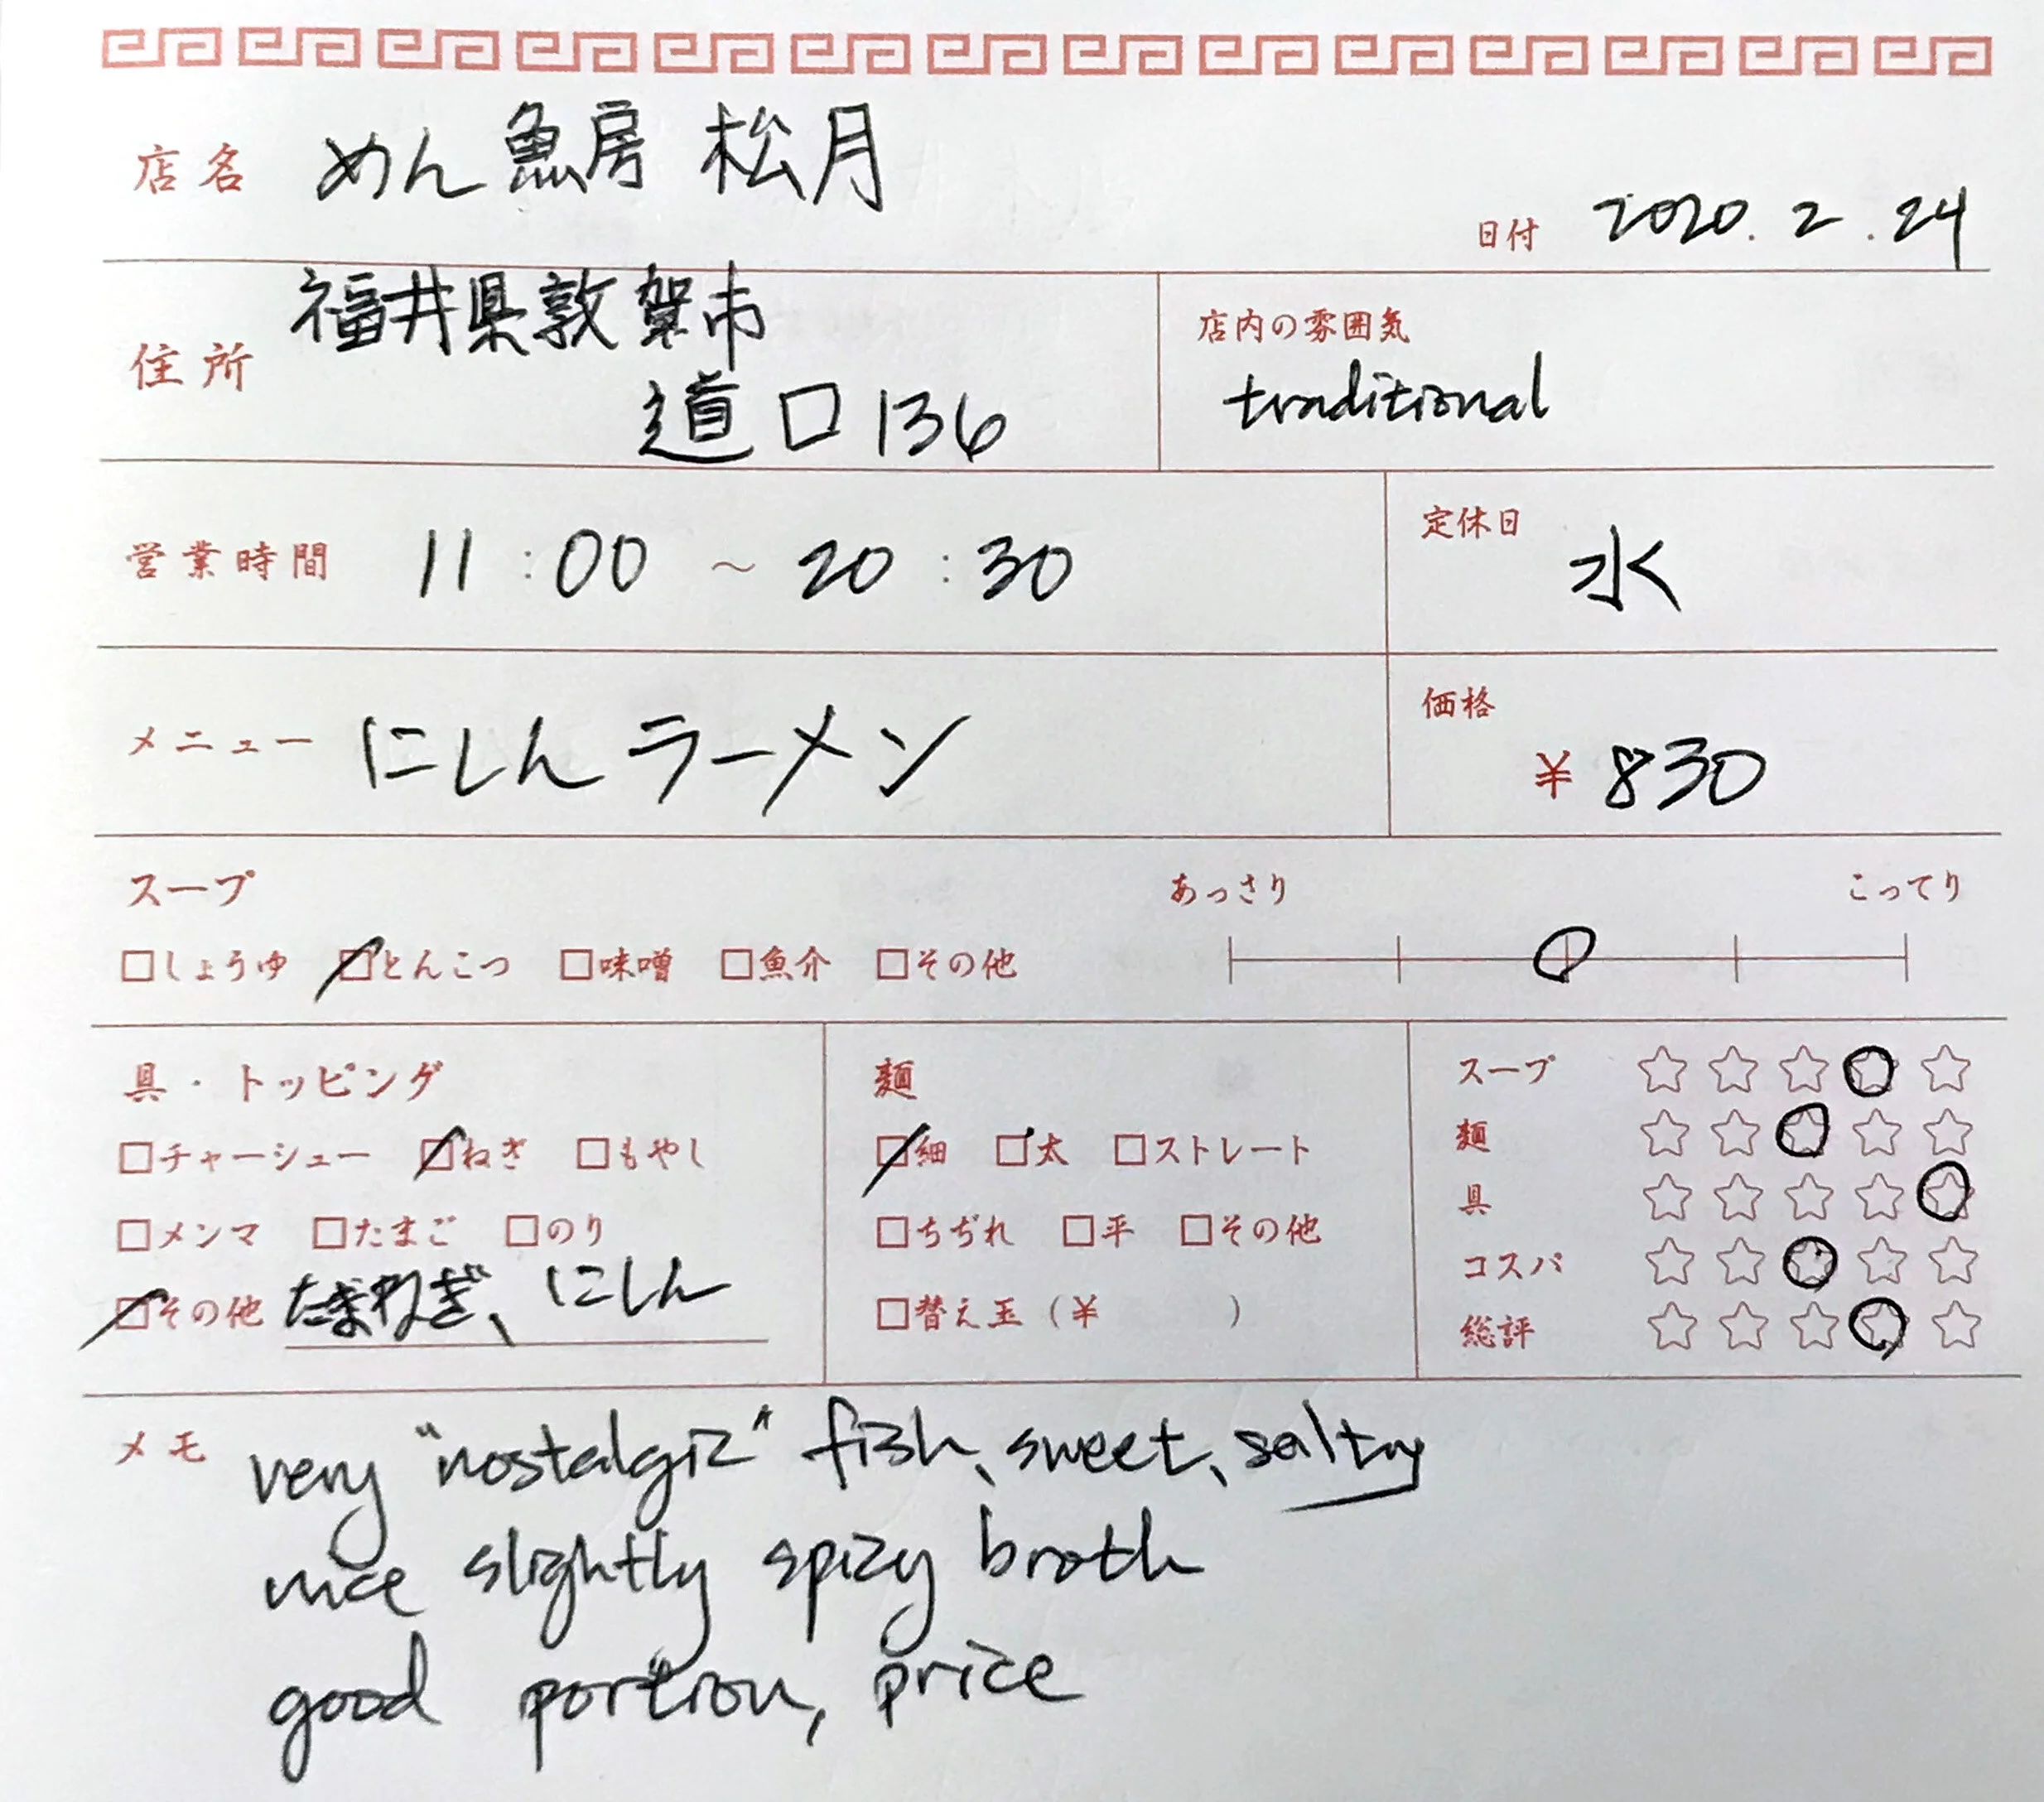 店名 めん魚房 松月
日付 2020.2.24
住所 福井県敦賀市
道口136
店内の雰囲気
traditional
営業時間 11:00 ~ 20:30
定休日 水
メニュー にしんラーメン
価格
¥ 830
スープ
あっさり こってり
□しょうゆ □とんこつ □味噌 □魚介 □その他
具・トッピング
□チャーシュー □ねぎ □もやし
□メンマ □たまご □のり
□その他 たまねぎ、にしん
麺
□細 □太 □ストレート
□ちぢれ □平 □その他
□替え玉(¥ )
スープ ☆☆☆☆☆
麺 ☆☆☆☆☆
具 ☆☆☆☆☆
コスパ ☆☆☆☆☆
総評 ☆☆☆☆☆
メモ very "nostalgic" fish、sweet、salty
nice slightly spicy broth
good portion, price